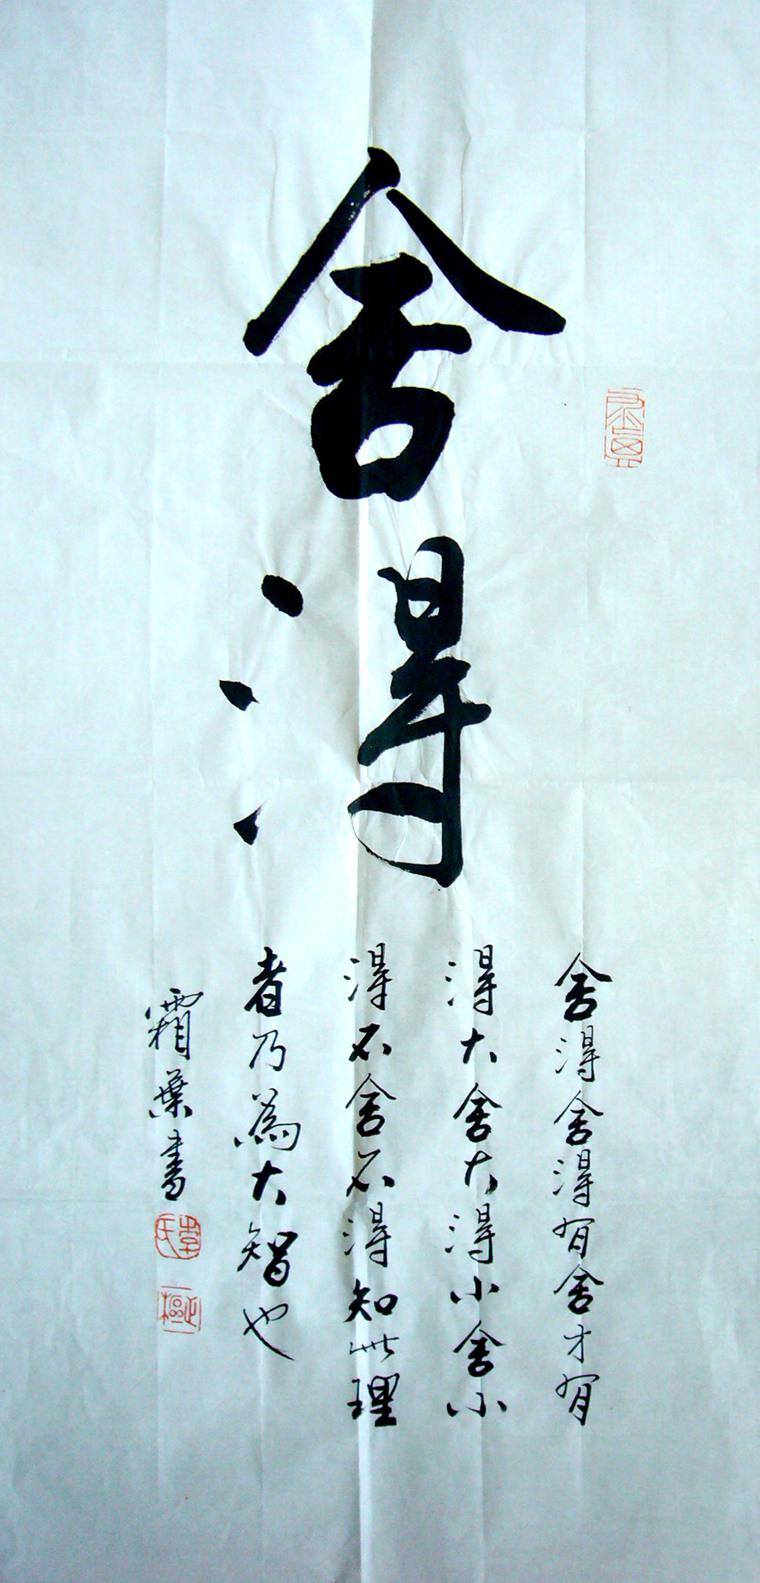 舍得
舍得舍得有舍才有
得大舍大得小舍小
得不舍不得知此理
者乃為大智也
霜葉書